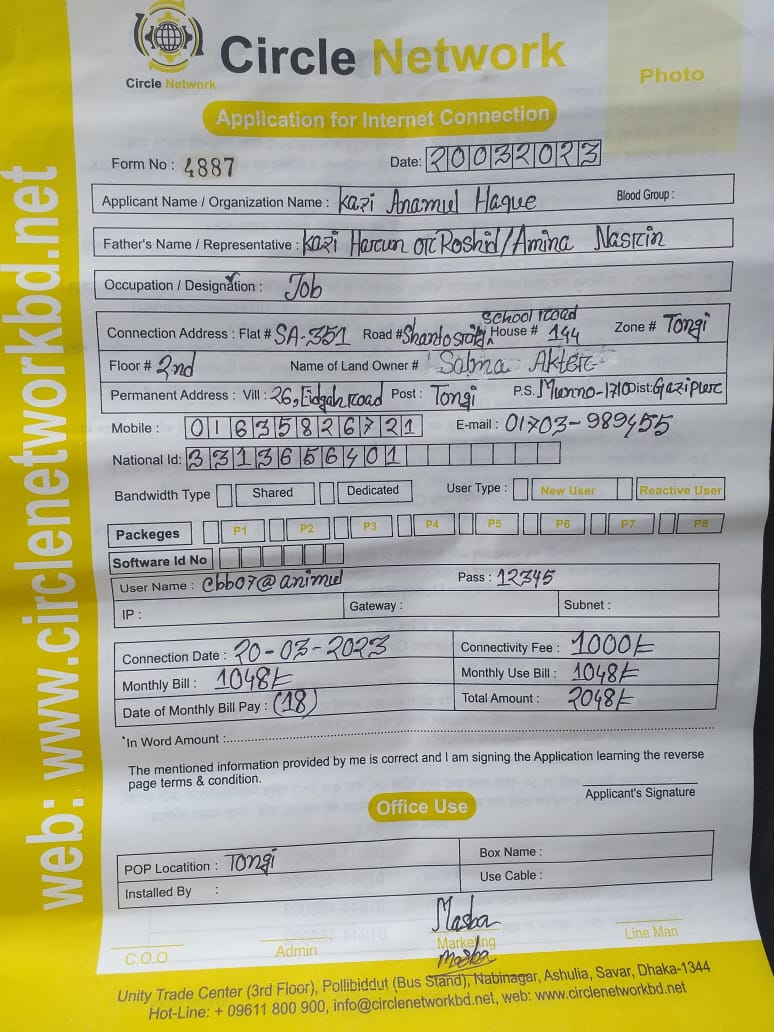 Circle Network
Circle Network
Photo
Application for Internet Connection
Form No : 4887
Date: 20032023
Applicant Name / Organization Name : Kazi Anamul Haque Blood Group :
Father's Name / Representative : Kazi Harun or Roshid/Amina Nasrin
Occupation / Designation : Job
School road
Connection Address : Flat # SA-351 Road # House # 144 Zone # Tongi
Floor # 2nd Name of Land Owner # Sabina Akter
Permanent Address : Vill : 26, Eidgah road Post : Tongi P.S. Munno-1710 Dist: Gazipur
Mobile : 01635826721 E-mail : 01703-989455
National Id: 3313656401
Bandwidth Type Shared Dedicated User Type : New User Reactive User
Packeges P1 P2 P3 P4 P5 P6 P7 P8
Software Id No
User Name : cbb07@animul Pass : 12345
IP : Gateway : Subnet :
Connection Date : 20-03-2023 Connectivity Fee : 1000/=
Monthly Bill : 1048/= Monthly Use Bill : 1048/=
Date of Monthly Bill Pay : (18) Total Amount : 2048/=
*In Word Amount :
The mentioned information provided by me is correct and I am signing the Application learning the reverse
page terms & condition.
Applicant's Signature
Office Use
POP Locatition : Tongi Box Name :
Installed By : Use Cable :
Masba
C.O.O Admin Marketing Line Man
Masba
Unity Trade Center (3rd Floor), Pollibiddut (Bus Stand), Nabinagar, Ashulia, Savar, Dhaka-1344
Hot-Line: + 09611 800 900, info@circlenetworkbd.net, web: www.circlenetworkbd.net
web: www.circlenetworkbd.net